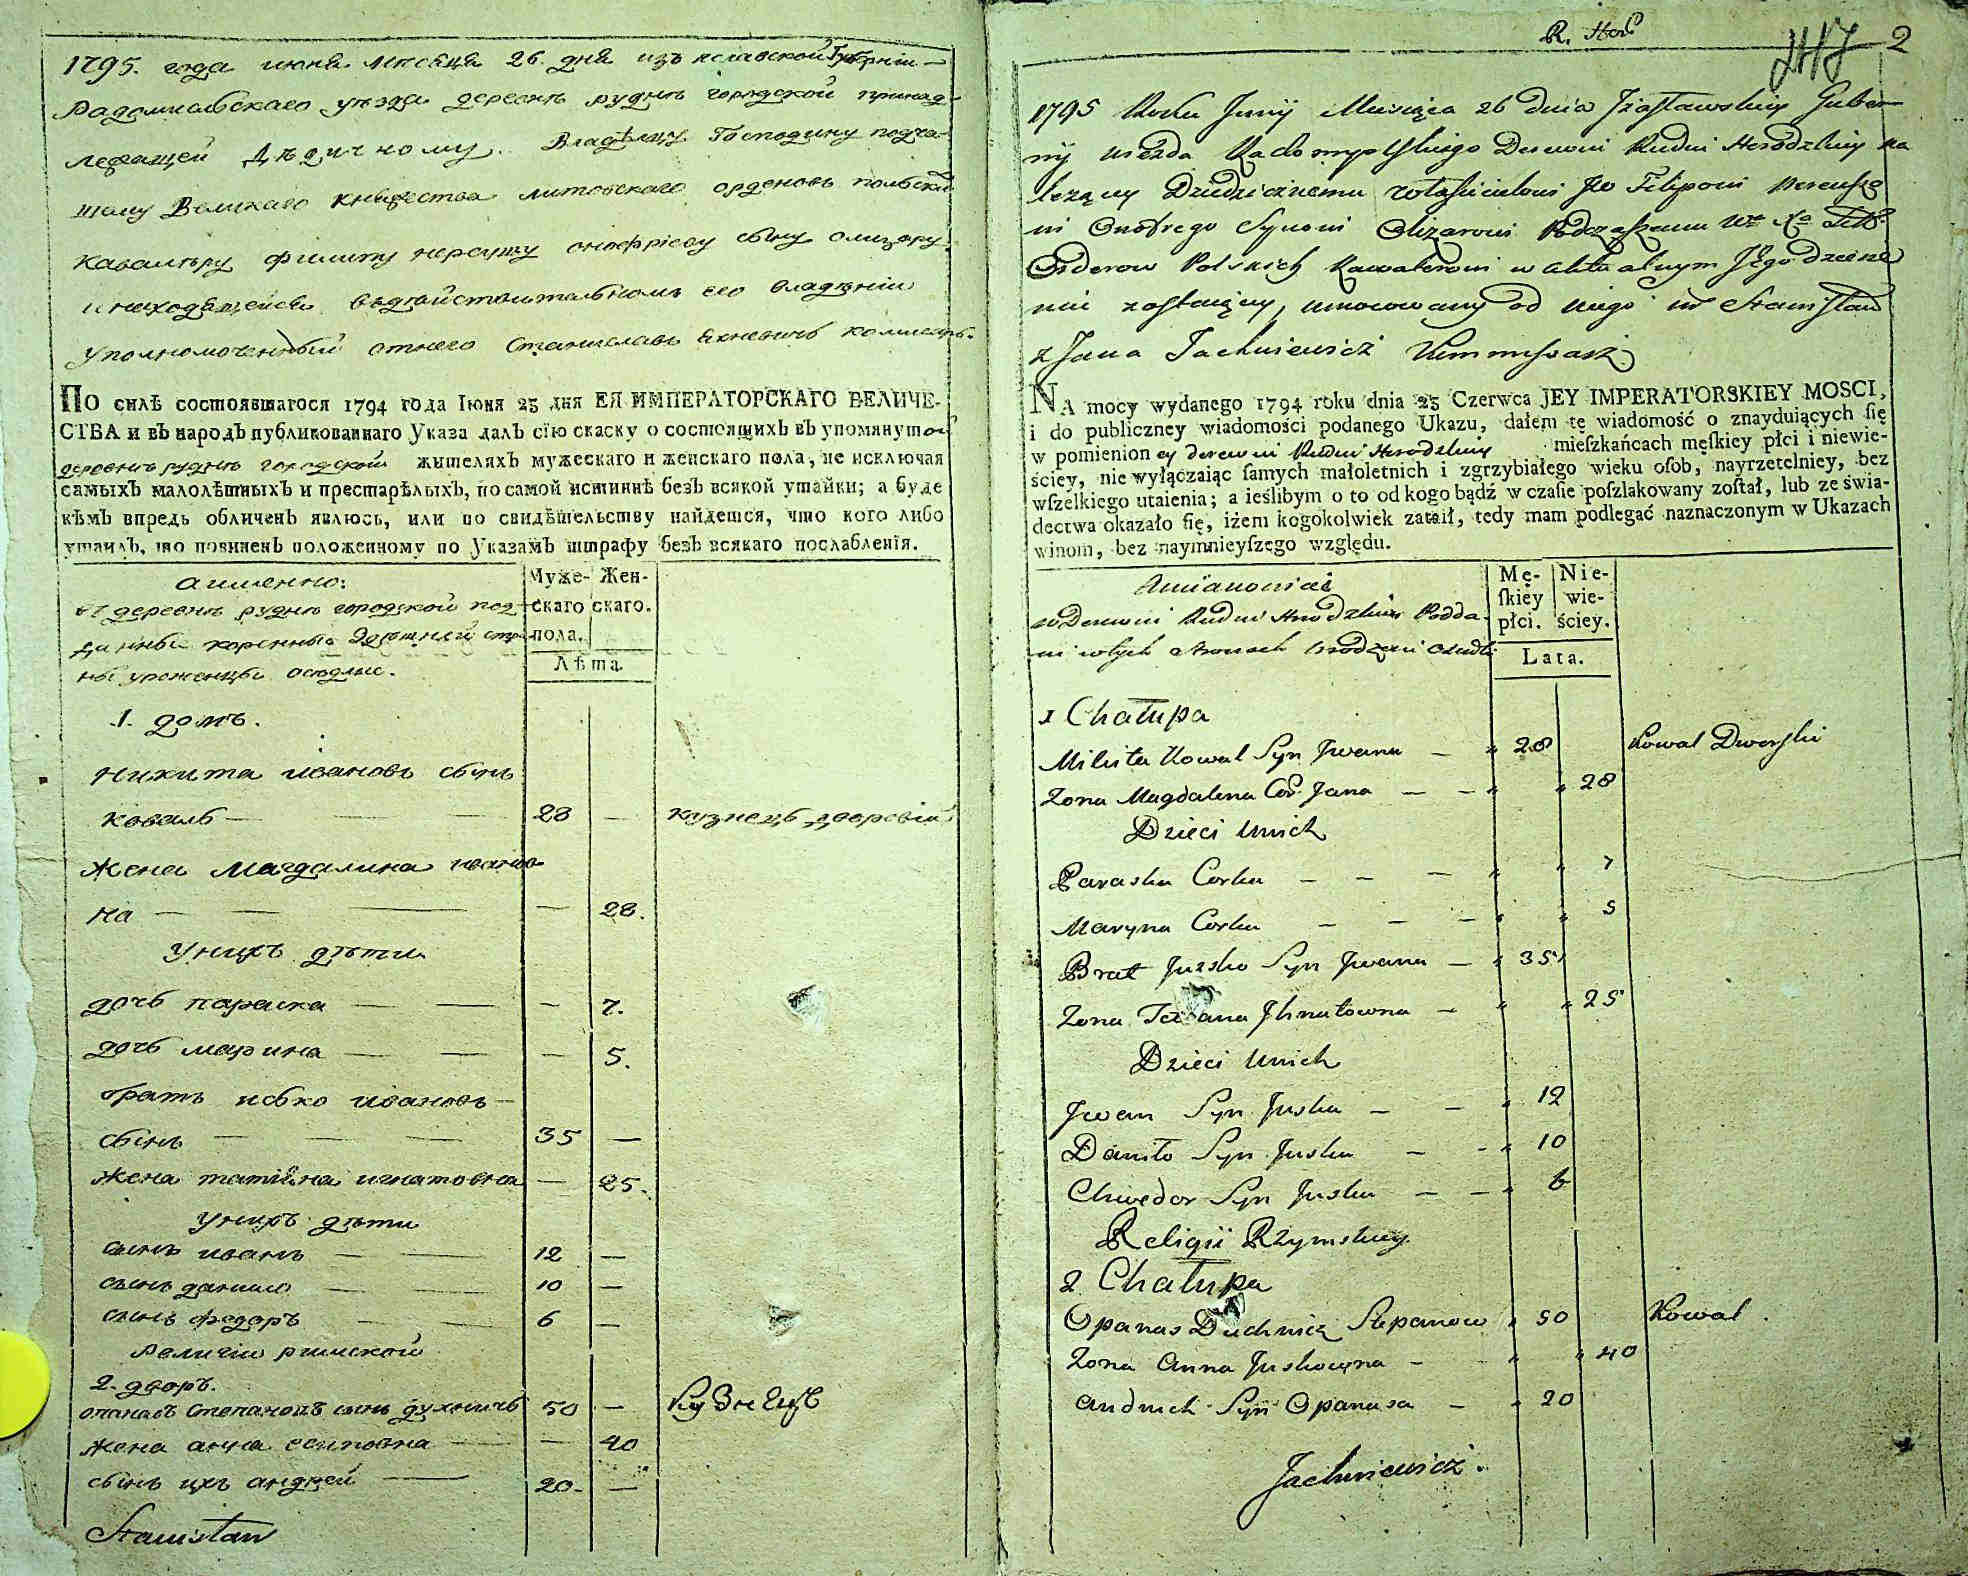 1795. года июня месяца 26. дня изъяславской Губернiи
Радомысльскаго уезда деревнѣ руднѣ городской принад-
лежащей Дѣдичному Владѣлцу Господину подча-
шому Великаго княжества литовскаго орденовъ польских
Кавалѣру филипу нереушу онофрiеву сыну олизару
и находящейся въдѣйствительномъ его владѣнiи
уполномоченный отнего Станиславъ Яхневичъ коммисаръ.
ПО силѣ состоявшагося 1794 года Iюня 23 дня ЕЯ ИМПЕРАТОРСКАГО ВЕЛИЧЕ-
СТВА и въ народъ публикованнаго Указа далъ сїю скаску о состоящихъ въ упомянутой
деревнѣ руднѣ городской жителяхъ мужескаго и женскаго пола, не исключая
самыхъ малолѣтныхъ и престарѣлыхъ, по самой истиннѣ безъ всякой утайки; а буде
кѣмъ впредь обличенъ явлюсь, или по свидѣтельству найдется, что кого либо
утаилъ, то повиненъ положенному по Указамъ штрафу безъ всякаго послабленїя.
аименно:
въ деревнѣ руднѣ городской под-
данные коренные здѣшней стра-
ны уроженцы оседлые.
Муже-
скаго
пола.
Жен-
скаго.
Лѣта.
1. домъ.
никита ивановъ сынъ
коваль — 28 — кузнецъ дворовiй
жена магдалина иванов-
на — — 28.
У нихъ дѣти
дочь параска — — 7.
дочь марина — — 5.
братъ юско ивановъ
сынъ — 35 —
жена татiяна игнатовна — 25.
У нихъ дѣти
сынъ иванъ — 12 —
сынъ данило — 10 —
сынъ федоръ — 6 —
Религiи римской
2. дворъ.
опанасъ Степановъ сынъ духничъ 50 — Кузнецъ
жена анна есиповна — — 40
сынъ ихъ андрей — 20. —
Stanisław
R. Hor
2
1795 Roku Junij Miesiąca 26 dnia Jzasławskiey Guber-
nij uiezda Radomyslskiego Derewni Rudni Horodzkiey na
leżącey Dziedzicznemu włascicielowi Jo Filipowi Nereuszo
wi Onofrego Synowi Olizarowi Podczaszemu Wo Xa Litt
Orderow Polskich Kawalerowi w aktualnym Jego dziedze
niu zostaiącey, umocowany od niego ur Stanisław
z Jana Jachniewicz Kommissarz
NA mocy wydanego 1794 roku dnia 23 Czerwca JEY IMPERATORSKIEY MOSCI,
i do publiczney wiadomości podanego Ukazu, dałem tę wiadomość o znayduiących ſię
w pomienion ey derewni Rudni Horodzkiey mieſzkańcach męſkiey płci i niewie-
ściey, nie wyłączaiąc ſamych małoletnich i zgrzybiałego wieku oſob, nayrzetelniey, bez
wſzelkiego utaienia; a ieślibym o to od kogo bądź w czaſie poſzlakowany zoſtał, lub ze świa-
dectwa okazało ſię, iżem kogokolwiek zataił, tedy mam podlegać naznaczonym w Ukazach
winom, bez naymnieyſzego względu.
Amianowicie
w Derewni Rudni Horodzkiey Podda-
ni wtych stronach urodzeni osiedli
Mę-
ſkiey
płci.
Nie-
wie-
ściey.
Lata.
1 Chałupa
Mikita Kowal Syn Jwana — " 28 Kowal Dworski
Zona Magdalena Cor. Jana — — " " 28
Dzieci Unich
Paraska Corka — — — " " 7
Maryna Corka — — — " " 5
Brat Juzsko Syn Jwana — " 35
Zona Tetiana Jhnatowna — " " 25
Dzieci Unich
Jwan Syn Juska — — " 12
Daniło Syn Juska — — " 10
Chwedor Syn Juska — — " 6
Religii Rzymskiey
2 Chałupa
Opanas Duchnicz Stepanow " 50 Kowal.
Zona Anna Juskowna — " " 40
Andruch Syn Opanasa — " 20
Jachniewicz.